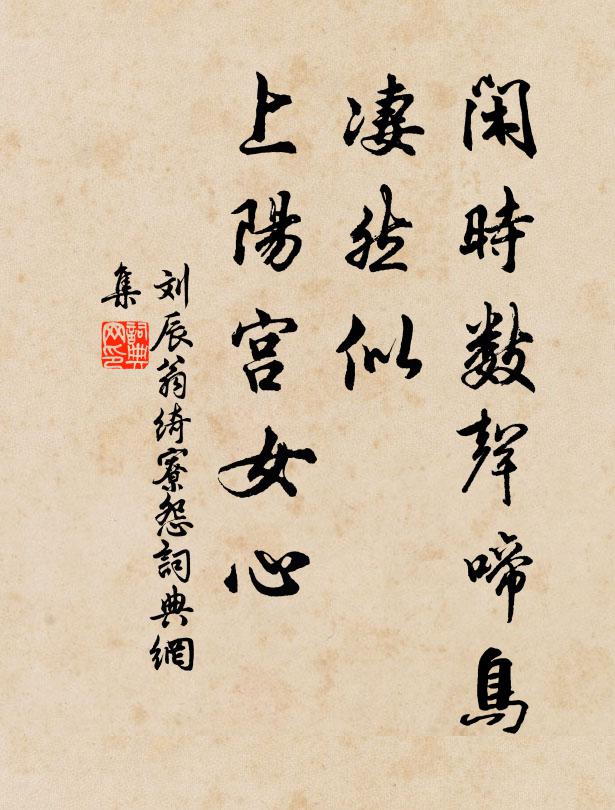 闲時数聲啼鳥
凄然似
上陽宫女心
刘辰翁绮寮怨詞典網
集
詞典网印